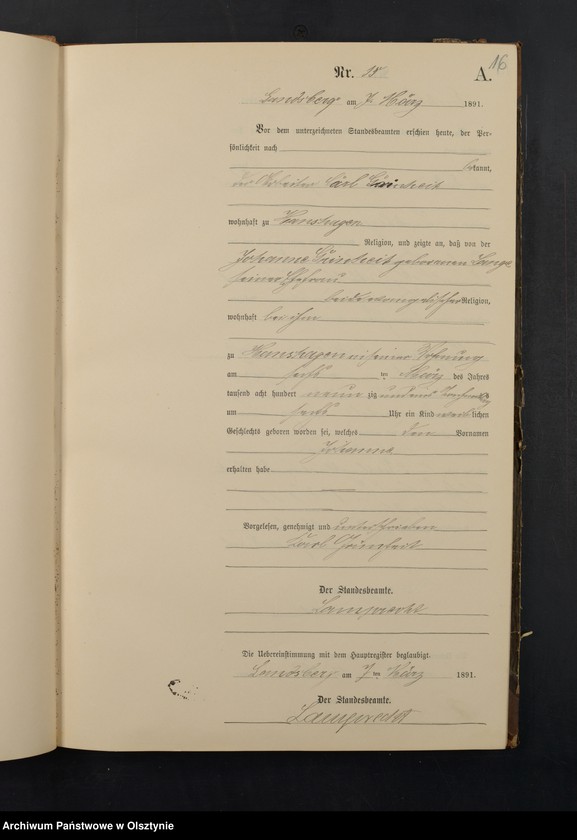 16
Nr. 18
A.
Landsberg am 7. März 1891.
Vor dem unterzeichneten Standesbeamten erschien heute, der Per-
sönlichkeit nach
bekannt,
der Arbeiter Carl
wohnhaft zu Hanshagen
Religion, und zeigte an, daß von der
Johanne geborenen Lange
seiner Ehefrau
beide evangelischer Religion,
wohnhaft bei ihm
zu Hanshagen in seiner Wohnung
am sechs ten März des Jahres
tausend acht hundert neun zig und eins
um sechs Uhr ein Kind weib lichen
Geschlechts geboren worden sei, welches den Vornamen
Johanna
erhalten habe
Vorgelesen, genehmigt und unterschrieben
Carl
Der Standesbeamte.
Lamprecht
Die Uebereinstimmung mit dem Hauptregister beglaubigt.
Landsberg am 7 ten März 1891.
Der Standesbeamte.
Lamprecht
Archiwum Państwowe w Olsztynie